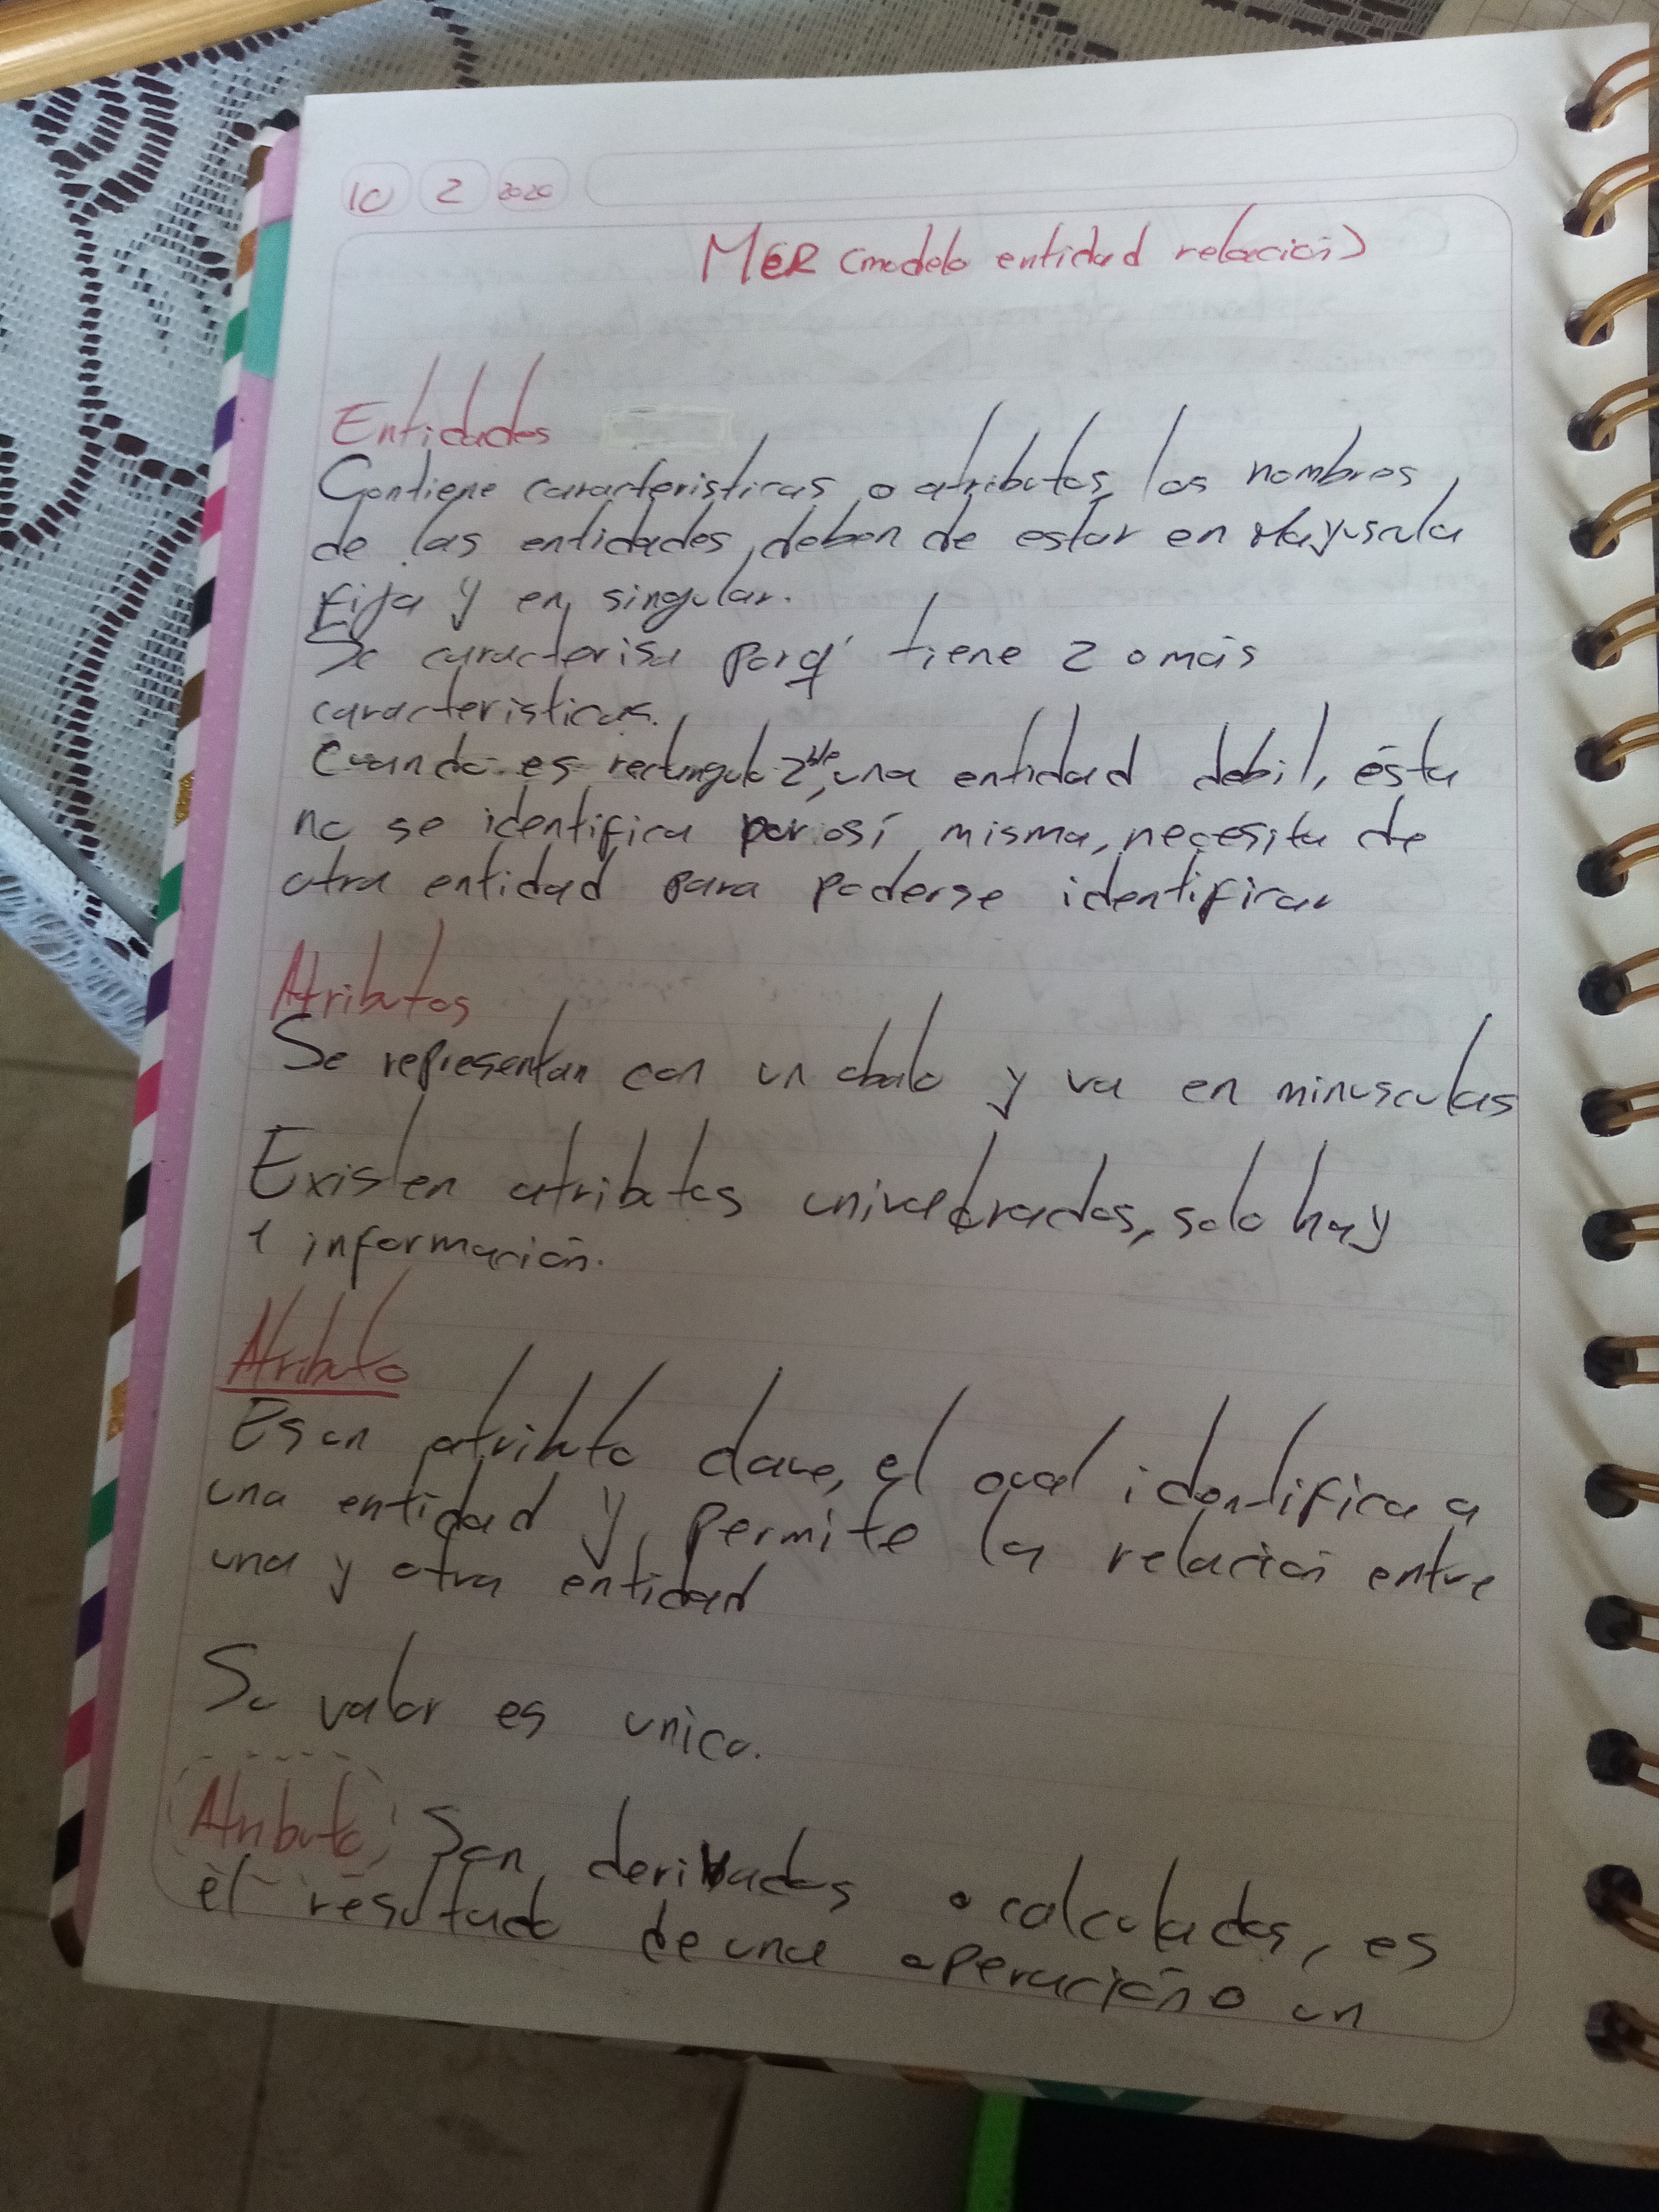 10 2 2020
MER (modelo entidad relación)
Entidades
Contiene caracteristicas o atributos, los nombres
de las entidades, deben de estar en Mayuscula
Fija y en singular.
Se caracterisa porq' tiene 2 o más
caracteristicas.
Cuando es rectangulo 2ble, una entidad debil, ésta
no se identifica por si misma, necesita de
otra entidad para poderse identificar
Atributos
Se representan con un obalo y va en minusculas
Existen atributos solo hay
1 información.
Atributo
Es un atributo clave, el cual identifica a
una entidad y permite la relación entre
una y otra entidad
Su valor es unico.
Atributo Son derivados o calculados, es
el resultado de una operación o un